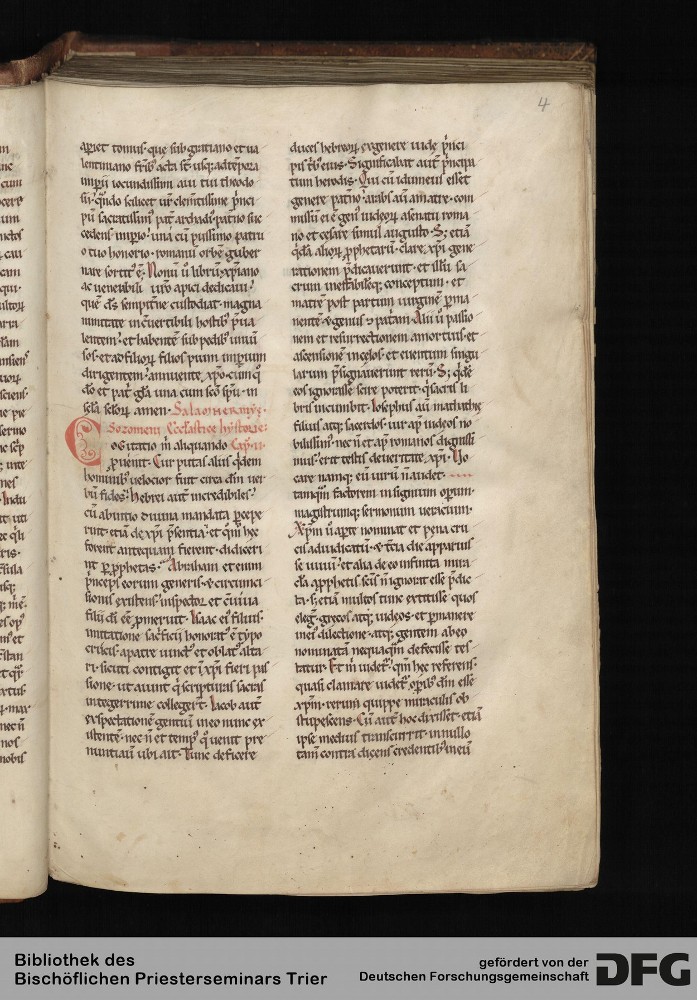 4
aperiet tomus. que sub gratiano et ua
lentiniano frīb; acta st̄. usq; ad tēpora
imperii iocundissimi aui tui theodo
sii. qn̄do scilicet uir clem̄tissime p̄nci
pū sacratissimus pat̄ archadius patr̄no suc
cedens imperio. una cū piissimo patru
o tuo honorio. romanū orbē guber
nare sortit' ē. Nonū ū librū xp̄iano
ac uenerabili uro apici dedicaui.
quē ds̄ sempit̄ne custodiat. magna
nimitate incōuertibili hostib; p̄ua
lentem. et habentē sub pedib; inimi
cos. et ad filioꝝ filios pium imperium
dirigentem. annuente xp̄o. cum q°
dō et patri gl̄a una cum sc̄o sp̄u. in
sc̄la sc̄loꝝ amen. Salaonermiꝰs.
Sozomeni Eccl̄asticę hystorię.
Cogitatio m̄ aliquando Cap. ii.
puenit. Cur putas aliis q̄dem
hominib; uelocior fuit circa dm̄ uer
bū fides. hebrei aut̄ incredibiles.
cū ab initio diuina mandata percepe
runt. etiā de xp̄i p̄sentia. et qm̄ hęc
forent antequam fierent. didiceri
nt per p̄phetas. Abraham et enim
princeps eorum generis. et circumci
sionis existens. inspector et cōuiua
filii dī eē promeruit. Isaac ei' filius.
imitatione sacrificii honorat' ē. typo
crucis. a patre uinct' et oblat' alta
ri. sicuti contigit et ī xp̄i fieri pas
sione. ut aiunt q̄ scripturas sacras
integerrime collegert̄. Iacob aut̄
expectationē gentiū in eo nunc ex
istente. nec n̄ et temp' q° uenit pre
nuntiauit ubi ait. Tunc deficere
duces hebreoꝝ ex genere iudę p̄nci
pis t̄b; eius. Significabat aut̄ p̄ncipa
tum herodis. Qui cū idumeus esset
genere patr̄no. arabs aū a matre. com
missū ei ē genus iudeoꝝ a senatu roma
no et cesare simul augusto. S; etiā
q̄dā alioꝝ prophetarū. clare xp̄i gene
rationem p̄dicauerunt. et illū sa
crum ineffabileq; conceptum. et
matrē post partum uirginē perma
nentē. et genus et patriam. Alii ū passio
nem et resurrectionem a mortuis. et
ascensionē in cęlos. et euentum singu
larum p̄signauerunt rerū. S; q̄dē
eos ignorasse. scire poterit. q̄ sacris li
bris incumbit. Iosephus aū mathathię
filius atq; sacerdos. uir ap̄ iudeos no
bilissim'. nec n̄ et ap̄ romanos dignissi
mus. erit testis de ueritate xp̄i. Uo
care namq; eū uirū n̄ audet.
tamquā factorem insignium operum.
magistrumq; sermonum uericium.
Xp̄m ū aperte nominat et pena cru
cis adiudicatū. et t̄cia die apparuis
se uiuū. et alia de eo infinita mira
cla a p̄phetis. sc̄is n̄ ignorat esse p̄dic
ta. s; etiā multos tunc extitisse quos
eleg̃. grecos atq; iudeos. et permanere
in ei' dilectione. atq; gentem ab eo
nominatā nequaquā defecisse tes
tatur. Et m̄ uidet̄. qm̄ hęc referens.
quasi clamare uidet̄. operib; dm̄ esse
xp̄m. rerum quippe miraculis ob
stupescens. Cū aut̄ hoc dixisset. etiā
ipse medius transcurrit. in nullo
tam̄ contradicens credentib; in eū
Bibliothek des
Bischöflichen Priesterseminars Trier
gefördert von der
Deutschen Forschungsgemeinschaft
DFG